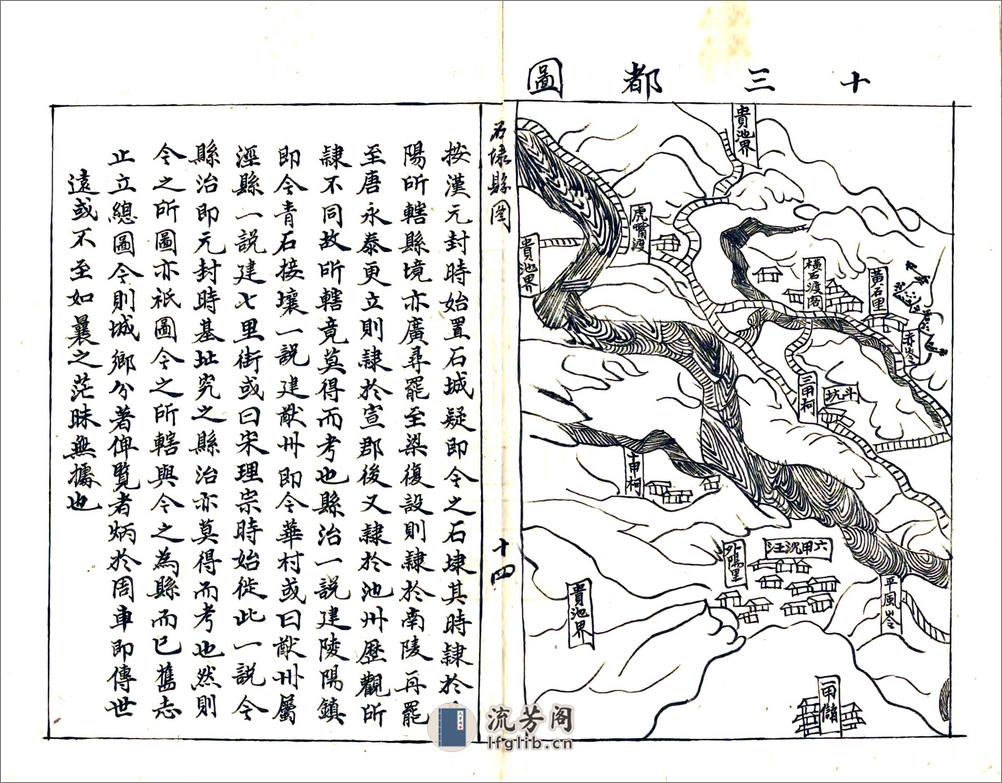 十三都圖
貴池界
虎嘴渡
貴池界
橫石渡閣
黃石里
三甲祠
斗坑
十甲祠
六甲沉汪
外鳴里
平風岺
貴池界
一甲陵
石埭縣圖
十四
按漢元封時始置石城疑即今之石埭其時隷於
陽所轄縣境亦廣尋罷至梁復設則隷於南陵再罷
至唐永泰更立則隷於宣郡後又隷於池州歷觀所
隷不同故所轄竟莫得而考也縣治一說建陵陽鎮
即今青石接壤一說建猷州即今華村或曰猷州屬
涇縣一說建七里街或曰宋理宗時始徙此一說今
縣治即元封時基址究之縣治亦莫得而考也然則
今之所圖亦祇圖今之所轄與今之為縣而已舊志
止立總圖今則城鄉分著俾覽者炳於周車即傳世
遠或不至如曩之茫昧無攄也
流芳阁
lfglib.cn